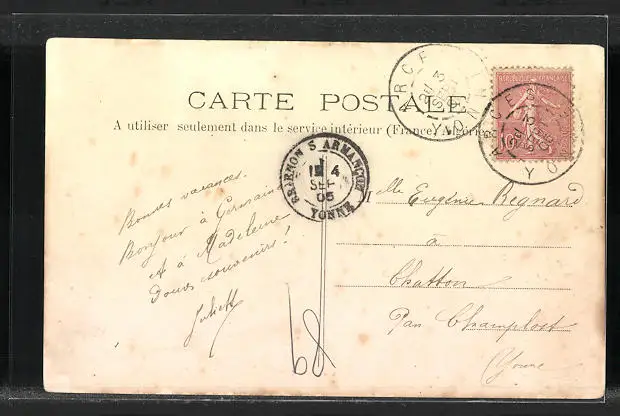 CARTE POSTALE
A utiliser seulement dans le service intérieur (France, Algérie
ARCES
YONNE
REPUBLIQUE FRANÇAISE
10
BRIENON S ARMANÇON
4
SEPT
05
YONNE
Bonnes vacances.
Bonjour à Germaine
et à Madeleine
Doux souvenirs!
Juliette
Mlle Eugénie Regnard
à
Chatton
Par Champlost
(Yonne
68